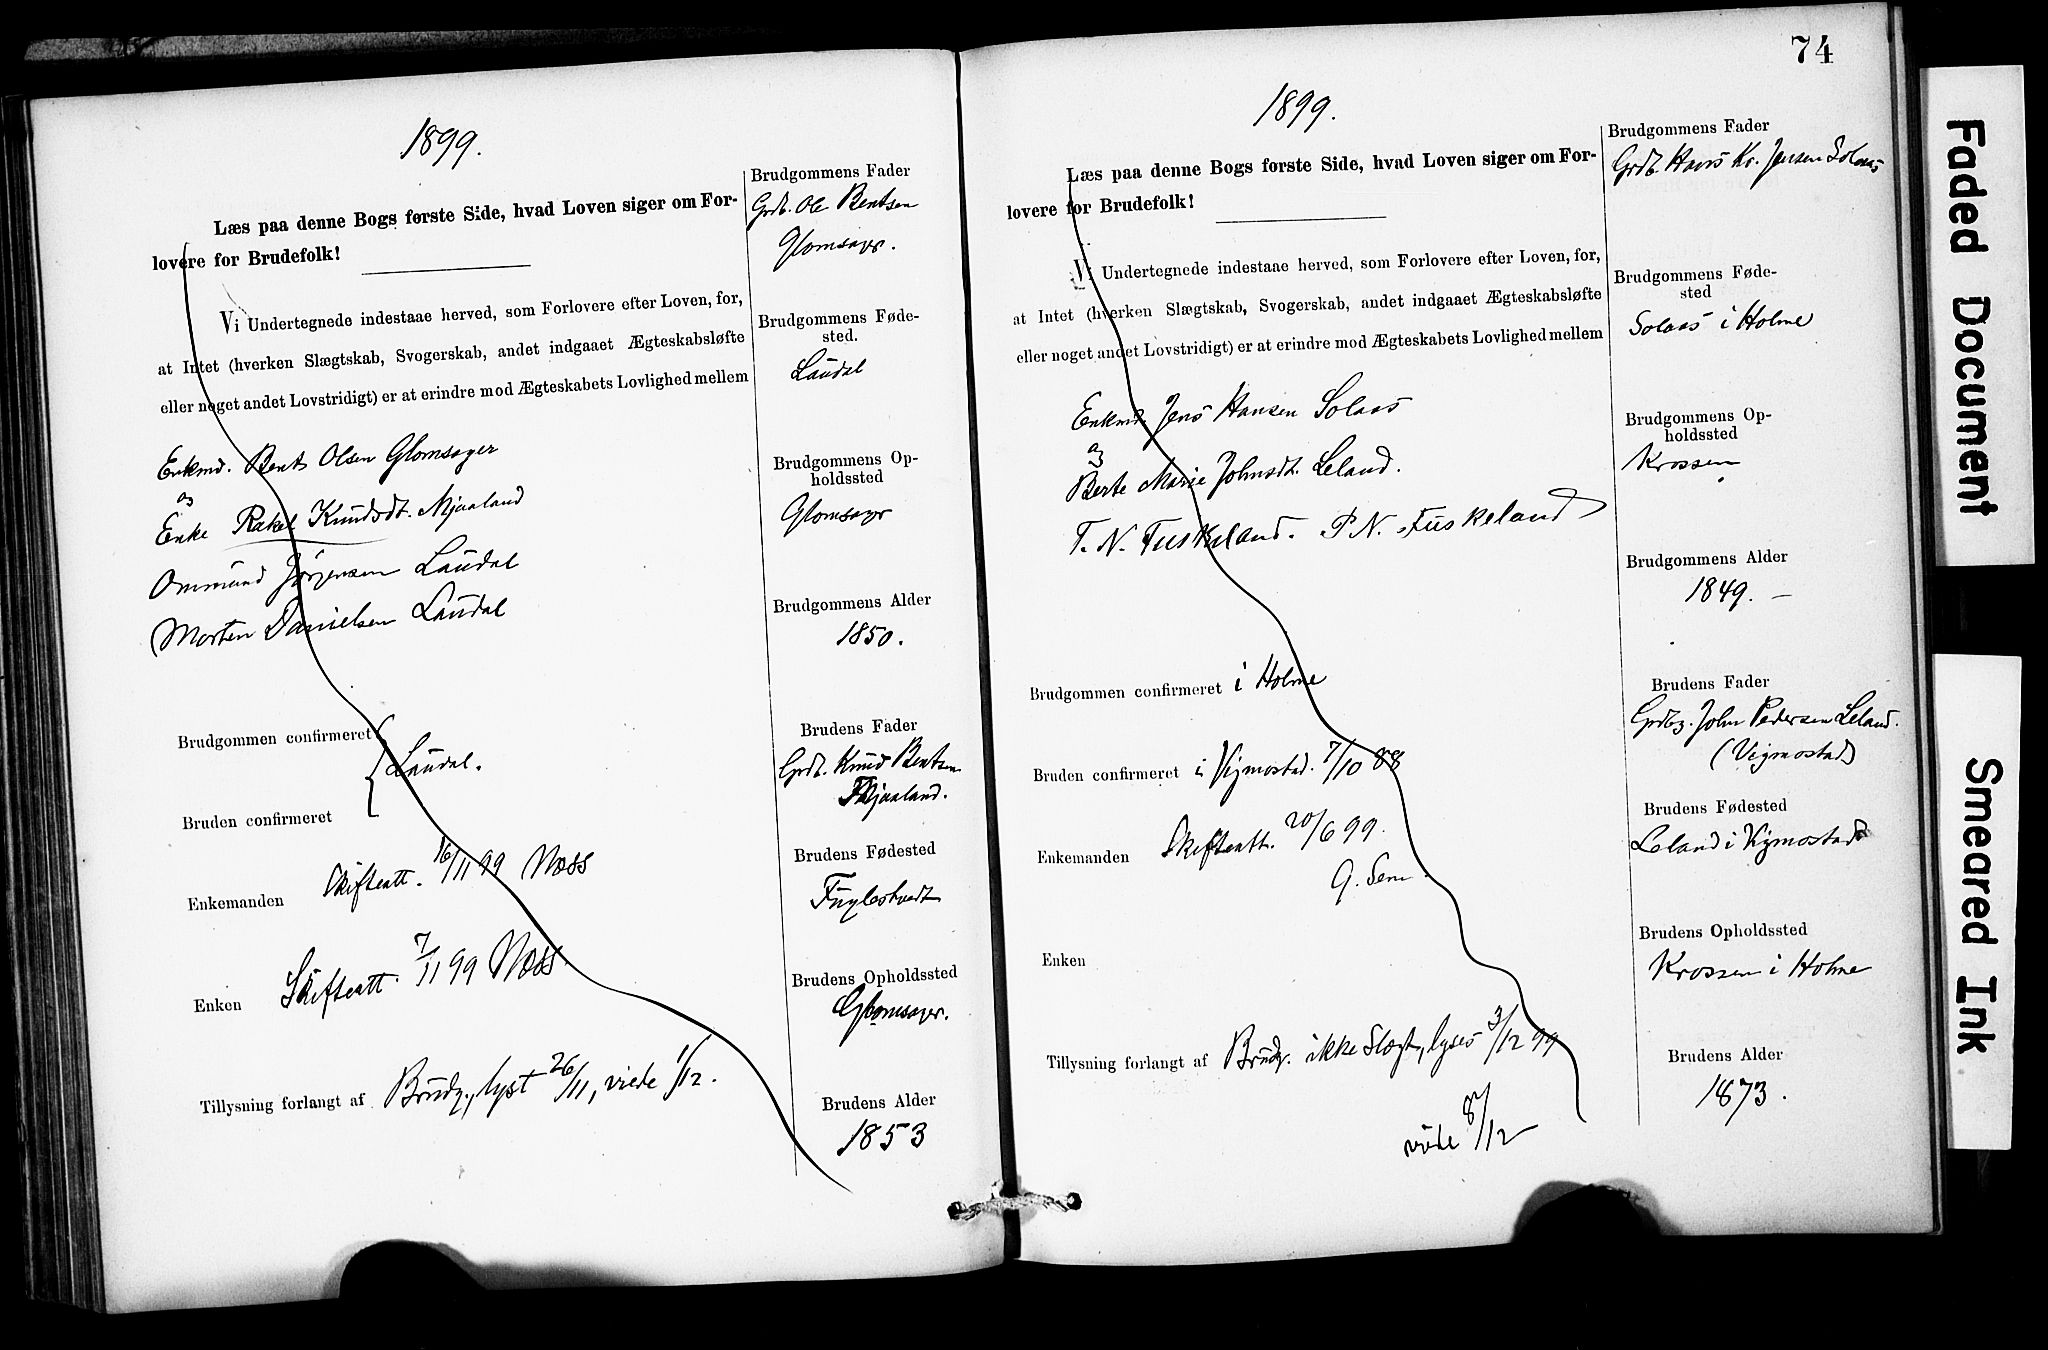 1899.
Læs paa denne Bogs første Side, hvad Loven siger om For-
lovere for Brudefolk!
Vi Undertegnede indestaae herved, som Forlovere efter Loven, for,
at Intet (hverken Slægtskab, Svogerskab, andet indgaaet Ægteskabsløfte
eller noget andet Lovstridigt) er at erindre mod Ægteskabets Lovlighed mellem
Enkmd. Bent Olsen Glomsager
og
Enke Rakel Knudsdt. Mjaaland
Ommund Jørgensen Laudal
Morten Danielsen Laudal
Brudgommen confirmeret
Laudal.
Bruden confirmeret
Enkemanden Skifteatt. 16/11 99 Næss
Enken Skifteatt. 7/11 99 Næss.
Tillysning forlangt af Brudg., lyst 26/11, viede 1/12.
Brudgommens Fader
Grdb. Ole Bentsen
Glomsager.
Brudgommens Føde-
sted.
Laudal
Brudgommens Op-
holdssted
Glomsager
Brudgommens Alder
1850.
Brudens Fader
Grdb. Knud Bentsen
Mjaaland.
Brudens Fødested
Fuglestvedt
Brudens Opholdssted
Glomsager.
Brudens Alder
1853
74
1899.
Læs paa denne Bogs første Side, hvad Loven siger om For-
lovere for Brudefolk!
Vi Undertegnede indestaae herved, som Forlovere efter Loven, for,
at Intet (hverken Slægtskab, Svogerskab, andet indgaaet Ægteskabsløfte
eller noget andet Lovstridigt) er at erindre mod Ægteskabets Lovlighed mellem
Enkmd. Jens Hansen Solaas
og
Berte Marie Johnsdt. Leland.
T. N. Fuskeland. P. N. Fuskeland
Brudgommen confirmeret i Holme
Bruden confirmeret i Vigmostad. 7/10 88
Enkemanden Skifteatt. 20/6 99.
G. Sem.
Enken
Tillysning forlangt af Brudg. ikke Slægt, lyses 3/12 99
viede 8/12
Brudgommens Fader
Grdb. Hans Kr. Jensen Solaas
Brudgommens Føde-
sted
Solaas i Holme
Brudgommens Op-
holdssted
Krossen
Brudgommens Alder
1849. –
Brudens Fader
Grdbg. John Pedersen Leland.
(Vigmostad)
Brudens Fødested
Leland i Vigmostad
Brudens Opholdssted
Krossen i Holme
Brudens Alder
1873.
Faded Document
Smeared Ink